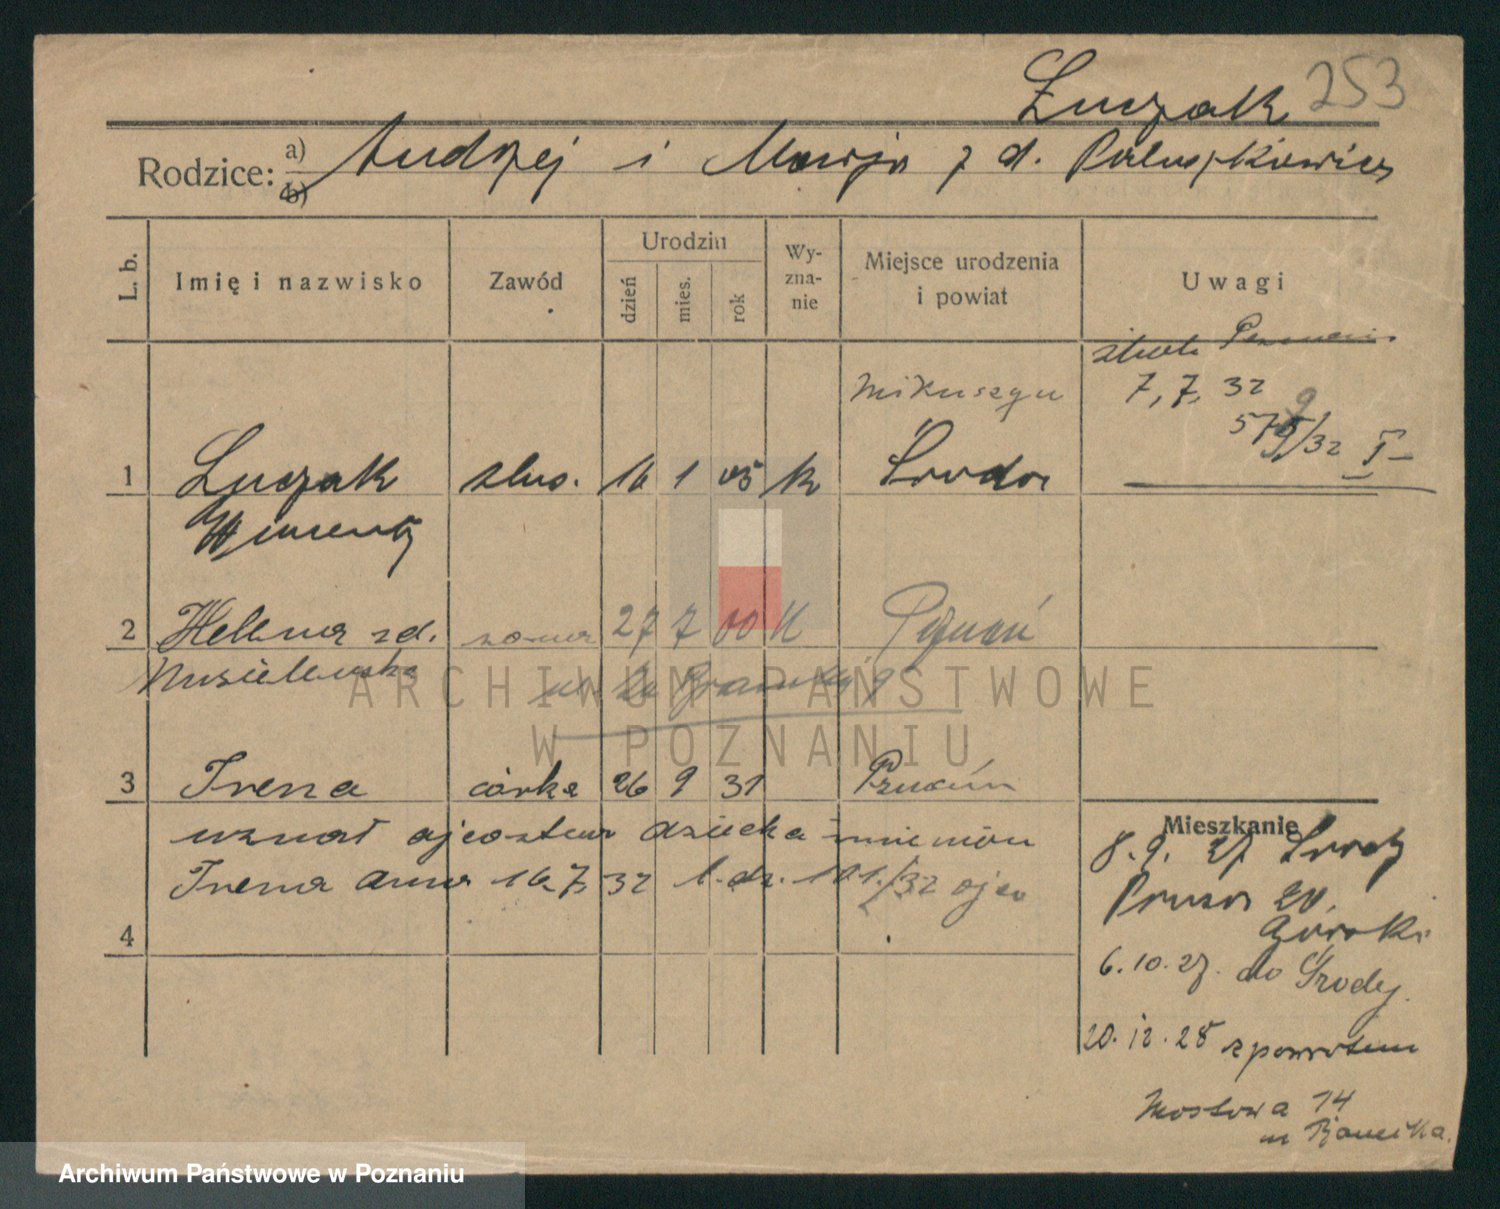 Łuczak 253
Rodzice: a) Andrzej i Marja z d. Paluszkiewicz
b)
L. b. Imię i nazwisko Zawód Urodziu Wy-zna-nie Miejsce urodzenia i powiat Uwagi
dzień mies. rok
ślub
Mikuszyn 7, 7, 32
579/32 I
1 Łuczak ślus. 16 1 05 k Środa
Wincenty
2 Helena zd. żona 27 7 00 K Poznań
Musielewska
3 Irena córka 26 9 31 Poznań
uznał ojcostwo dziecka imieniem
Irena Anna 16.7.32 l. dz. 101/32 ojca
4
Mieszkanie
8.9. 27 Środy
Prusa 20.
Górski
6.10.27. do Środy.
20.12.28 z powrotem
Mostowa 14
ARCHIWUM PAŃSTWOWE
W POZNANIU
Archiwum Państwowe w Poznaniu